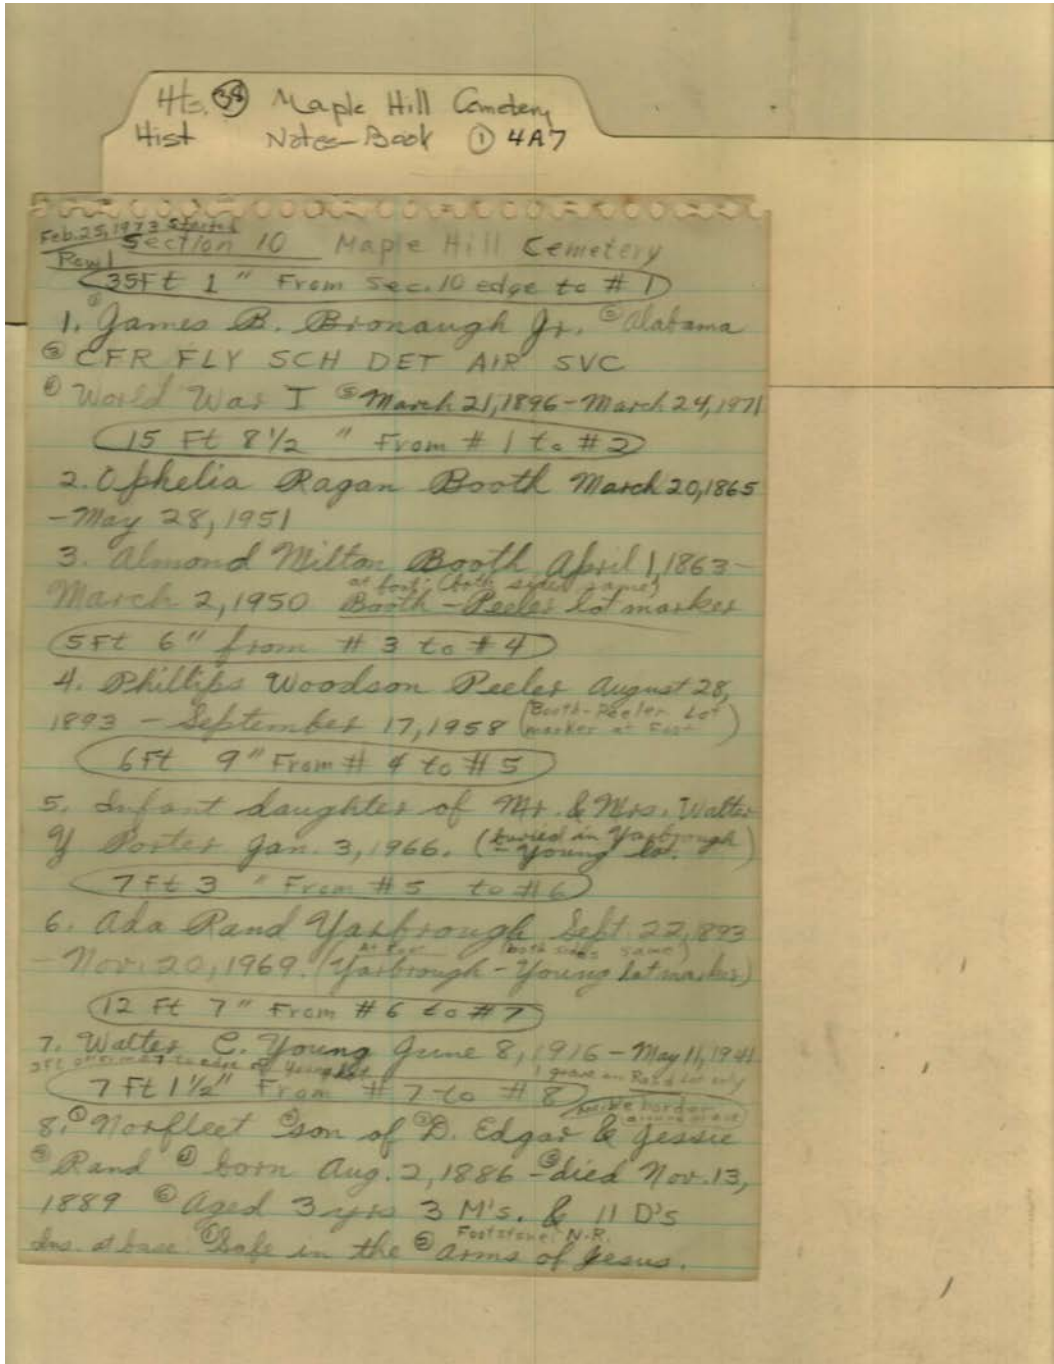 Hts. 38 Maple Hill Cemetery
Hist Notes-Book ① 4A7
Feb. 25, 1973 Started
Section 10 Maple Hill Cemetery
Row 1
35Ft 1" From Sec. 10 edge to #1
1. ① James B. Bronaugh Jr. ② Alabama
③ CFR FLY SCH DET AIR SVC
④ World War I ⑤ March 21, 1896 - March 24, 1971
15 Ft 8 1/2 " From # 1 to # 2
2. Ophelia Ragan Booth March 20, 1865
- May 28, 1951
3. Almond Milton Booth April 1, 1863 -
at foot: (both sides same)
March 2, 1950 Booth - Peeler lot marker
5Ft 6" from # 3 to # 4
4. Phillips Woodson Peeler August 28,
1893 - September 17, 1958 (Booth-Peeler Lot
marker at Foot)
6Ft 9" From # 4 to # 5
5. Infant daughter of Mr. & Mrs. Walter
Y Porter Jan. 3, 1966. (buried in Yarbrough
- Young lot.)
7Ft 3 " From # 5 to # 6
6. Ada Rand Yarbrough Sept. 22, 893
At (both sides same)
- Nov. 20, 1969. (Yarbrough - Young lot marker)
12 Ft 7" From # 6 to # 7
7. Walter C. Young June 8, 1916 - May 11, 1941
to edge of Young lot
1 grave on Rand Lot only
7 Ft 1 1/2" From # 7 to # 8
border around
8. ① Norfleet ② son of ③ D. Edgar & Jessie
③ Rand ④ born Aug. 2, 1886 - ⑤ died Nov. 13,
1889 ⑥ Aged 3 yrs 3 M's. & 11 D's
Footstone: N.R.
Ins. at base. ① Safe in the ② arms of Jesus.